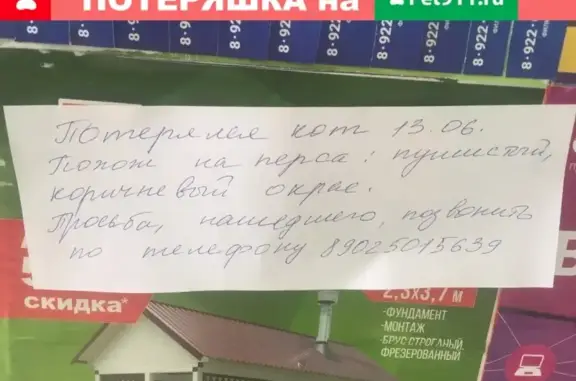 ПОТЕРЯШКА на
Pet911.ru
8-922
8-922
8-922
8-922
8-922
8-922
8-922
8-922
Потерялся кот 13.06.
Похож на перса: пушистый,
коричневый окрас.
Просьба, нашедшего, позвонить
по телефону 89025015639
скидка*
2,3х3,7 м
-ФУНДАМЕНТ
-МОНТАЖ
-БРУС СТРОГАНЫЙ,
ФРЕЗЕРОВАННЫЙ